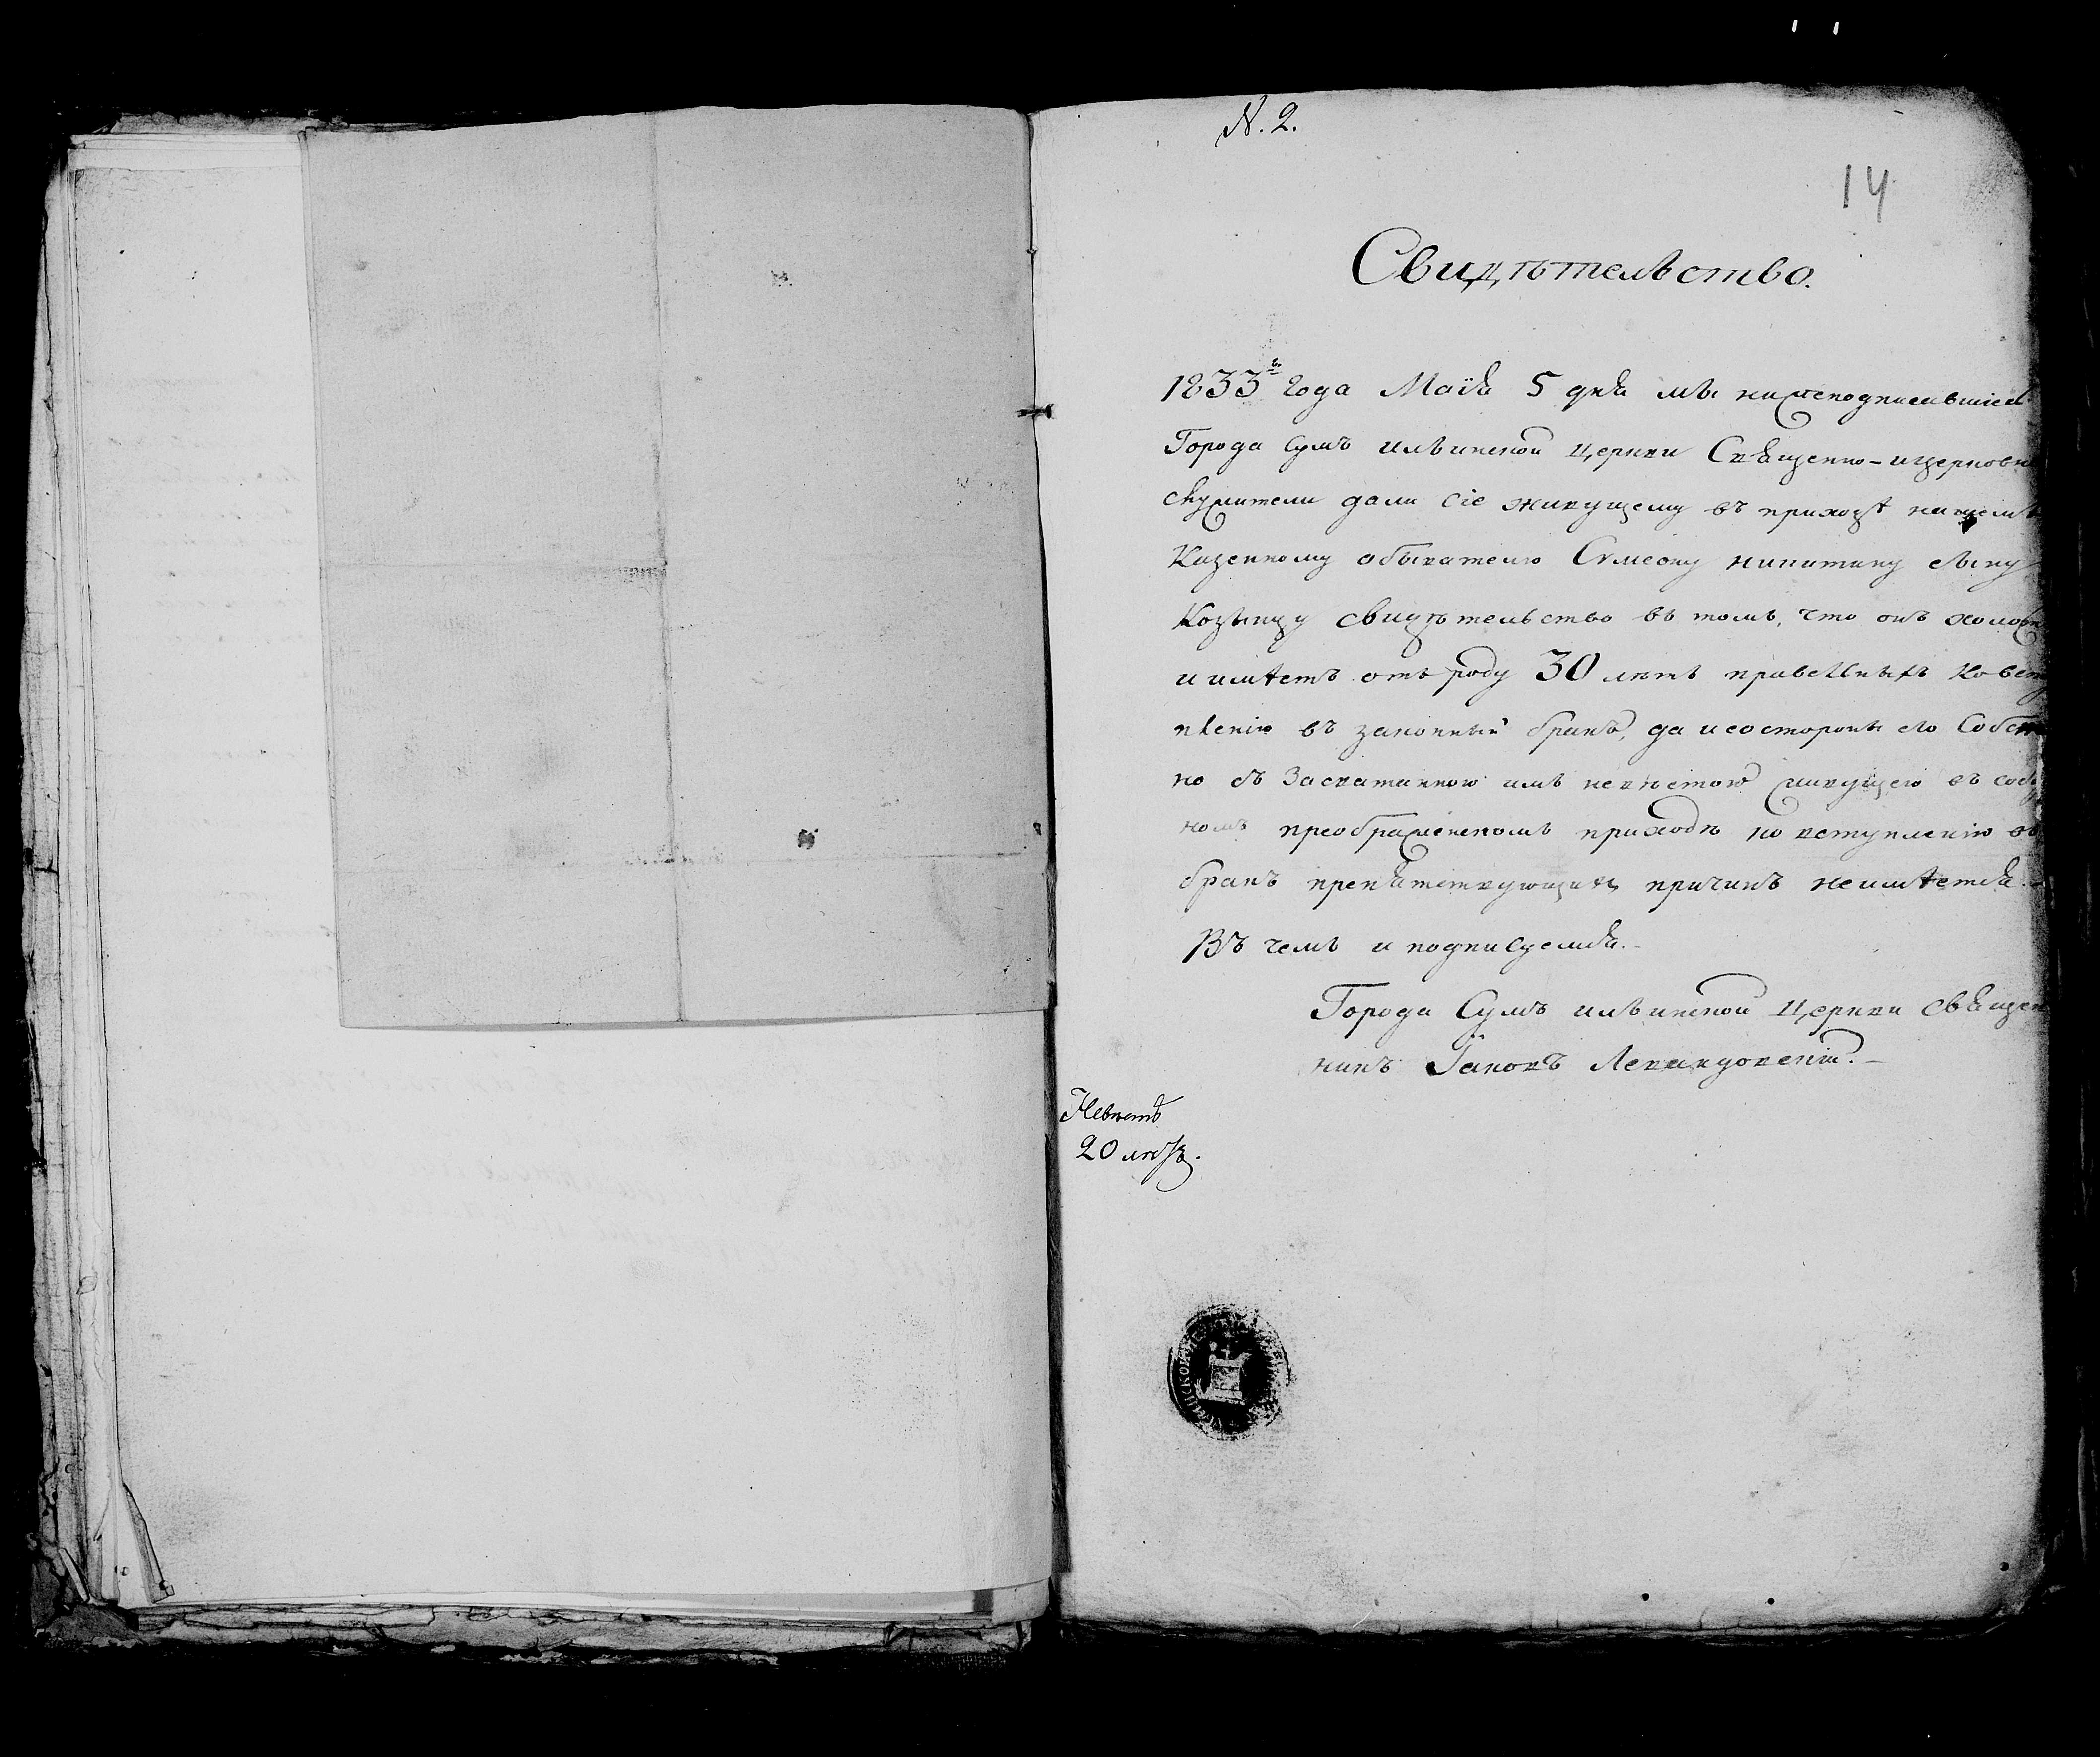 №. 2.
14
Свидѣтельство.
1833го года Маія 5 дня мы нижеподписавшіеся
Города Сумъ ильинской Церкви Священно-ицерковно
служители дали сіе живущему въ приходѣ нашемъ
Казенному обывателю Сумеону никитину сыну
свидѣтельство въ томъ, что онъ холость
и имѣетъ отъ роду 30 лѣтъ правельныхъ ковсту
пленію въ законный бракъ, да и состороны его Собствен
но съ Засватанною имъ невѣстою живущею въ собор
номъ преображенскомъ приходѣ ковступленію въ
бракъ препятствующихъ причинъ неимѣется.
Въ чемъ и подписуемся.
Города Сумъ ильинской Церкви священ
никъ Іаковъ
Невѣстѣ
20 лѣтъ.